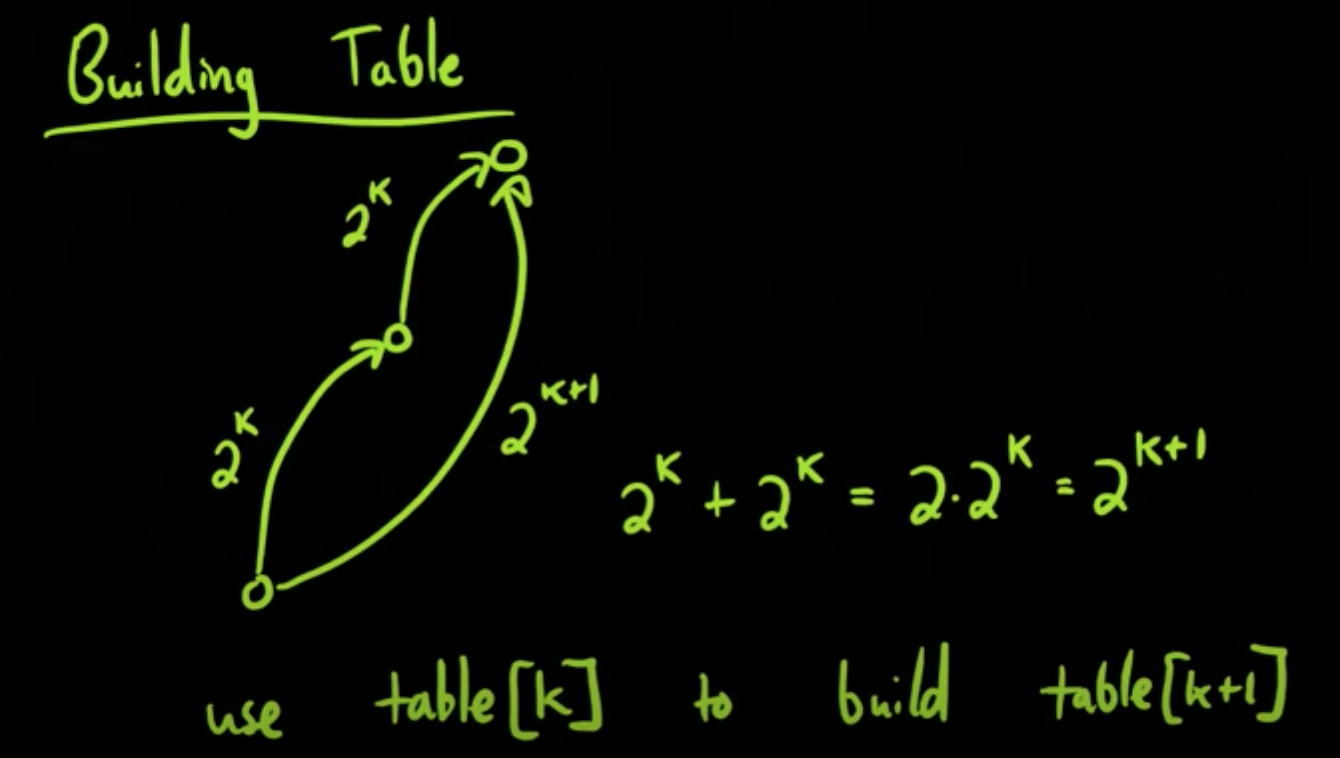 Building Table
2^k
2^k
2^k+1
2^k + 2^k = 2·2^k = 2^k+1
use table[k] to build table[k+1]